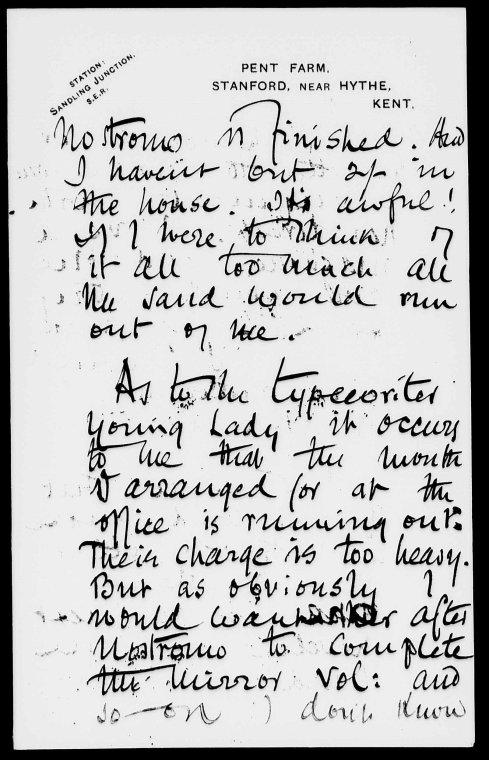 STATION:
SANDLING JUNCTION.
S.E.R.
PENT FARM,
STANFORD, NEAR HYTHE,
KENT.
Nostromo is finished. And
I havent but 2/- in
the house. It's awful!
If I were to think of
it all too much all
the sand would run
out of me.
As to the typewriter
young Lady it occurs
to me that the month
I arranged for at the
office is running out.
Their charge is too heavy.
But as obviously I
would want her after
Nostromo to complete
the Mirror vol: and
so on I don't know